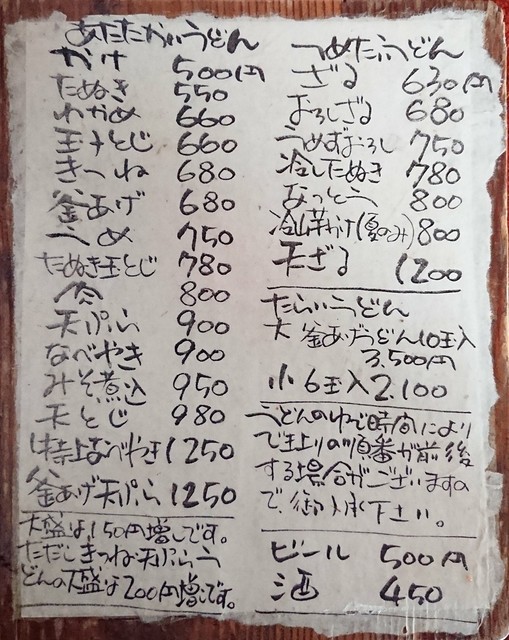 あたたかいうどん
かけ 500円
たぬき 550
わかめ 660
玉子とじ 660
きつね 680
釜あげ 680
うめ 750
たぬき玉とじ 780
肉 800
天ぷら 900
なべやき 900
みそ煮込 950
天とじ 980
特上なべやき 1250
釜あげ天ぷら 1250
大盛は、150円増しです。
ただしきつね天ぷらう
どんの大盛は200円増しです。
つめたいうどん
ざる 630円
おろしざる 680
うめずおろし 750
冷したぬき 780
なっとう 800
冷山芋かけ(夏のみ) 800
天ざる 1200
たらいうどん
大 釜あげうどん10玉入
3,500円
小 6玉入 2.100
うどんのゆで時間により
で上りの順番が前後
する場合がございますの
で、御了承下さい。
ビール 500円
酒 450